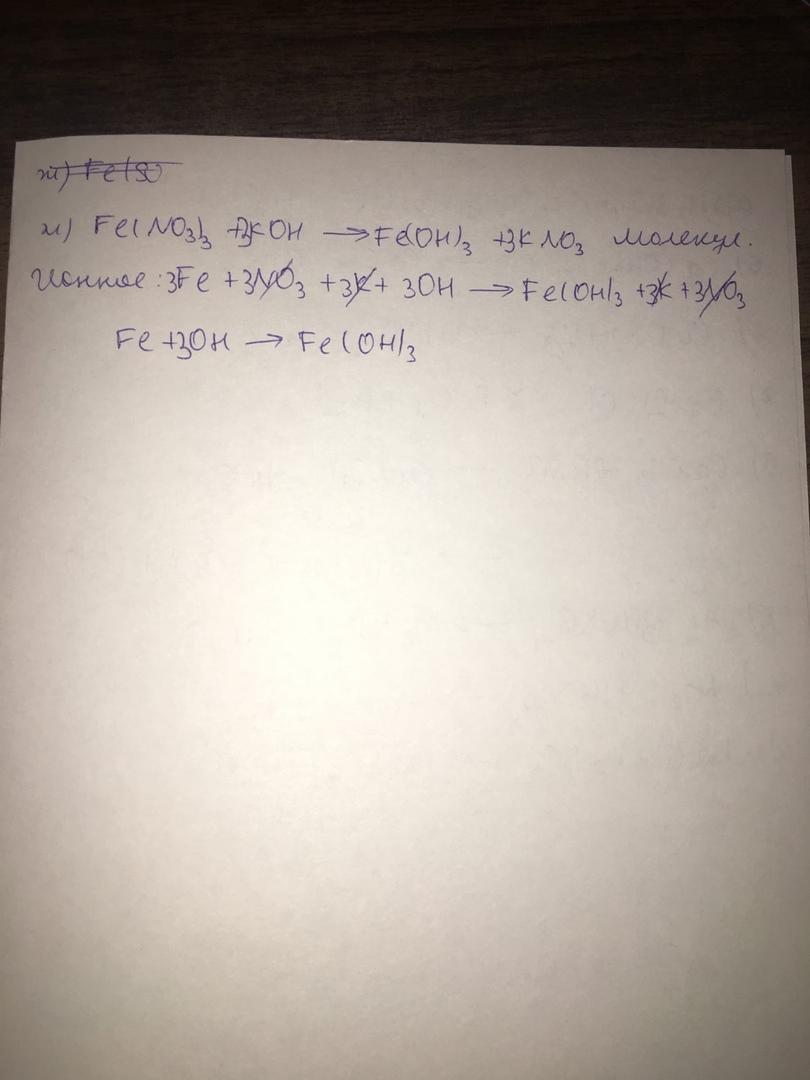 ж) Fe(SO
м) Fe(NO3)3 +3KOH → Fe(OH)3 +3KNO3 молекул.
Ионное: 3Fe + 3NO3 + 3K + 3OH → Fe(OH)3 +3K +3NO3
Fe +3OH → Fe(OH)3